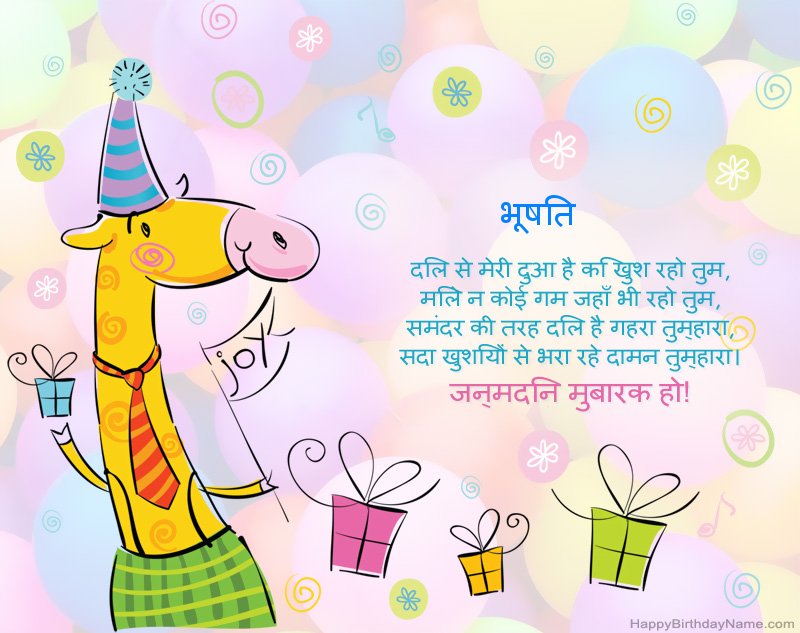 भूषति
दलि से मेरी दुआ है क िखुश रहो तुम,
मलिे न कोई गम जहाँ भी रहो तुम,
समंदर की तरह दलि है गहरा तुम्हारा,
सदा खुशयिों से भरा रहे दामन तुम्हारा।
जन्मदनि मुबारक हो!
joy
HappyBirthdayName.com